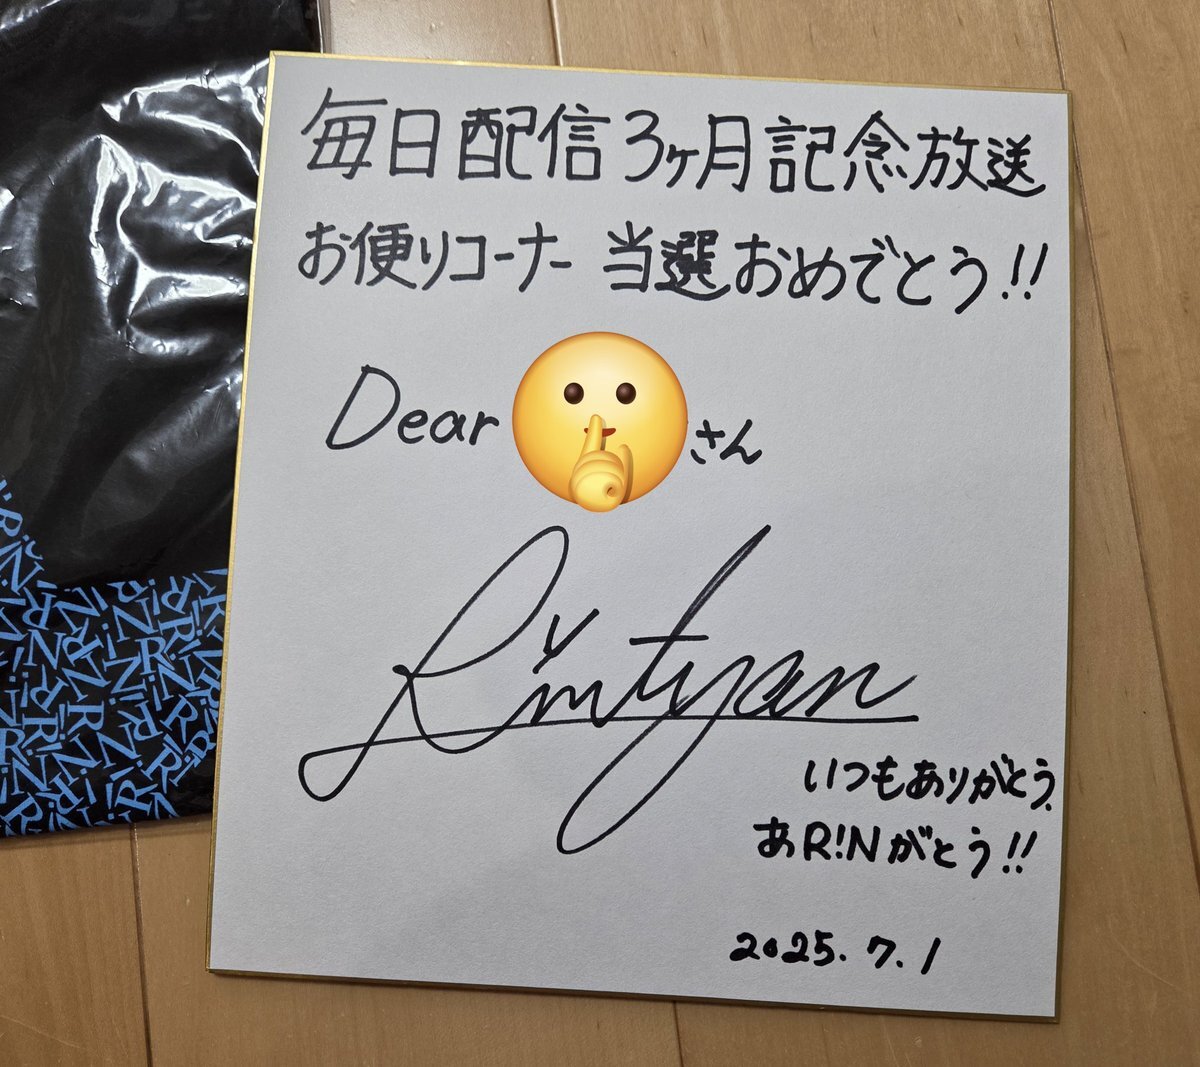 毎日配信3ヶ月記念放送
お便りコーナー 当選おめでとう!!
Dear さん
Rintyan
いつもありがとう、
あR!Nがとう!!
2025.7.1
R!N